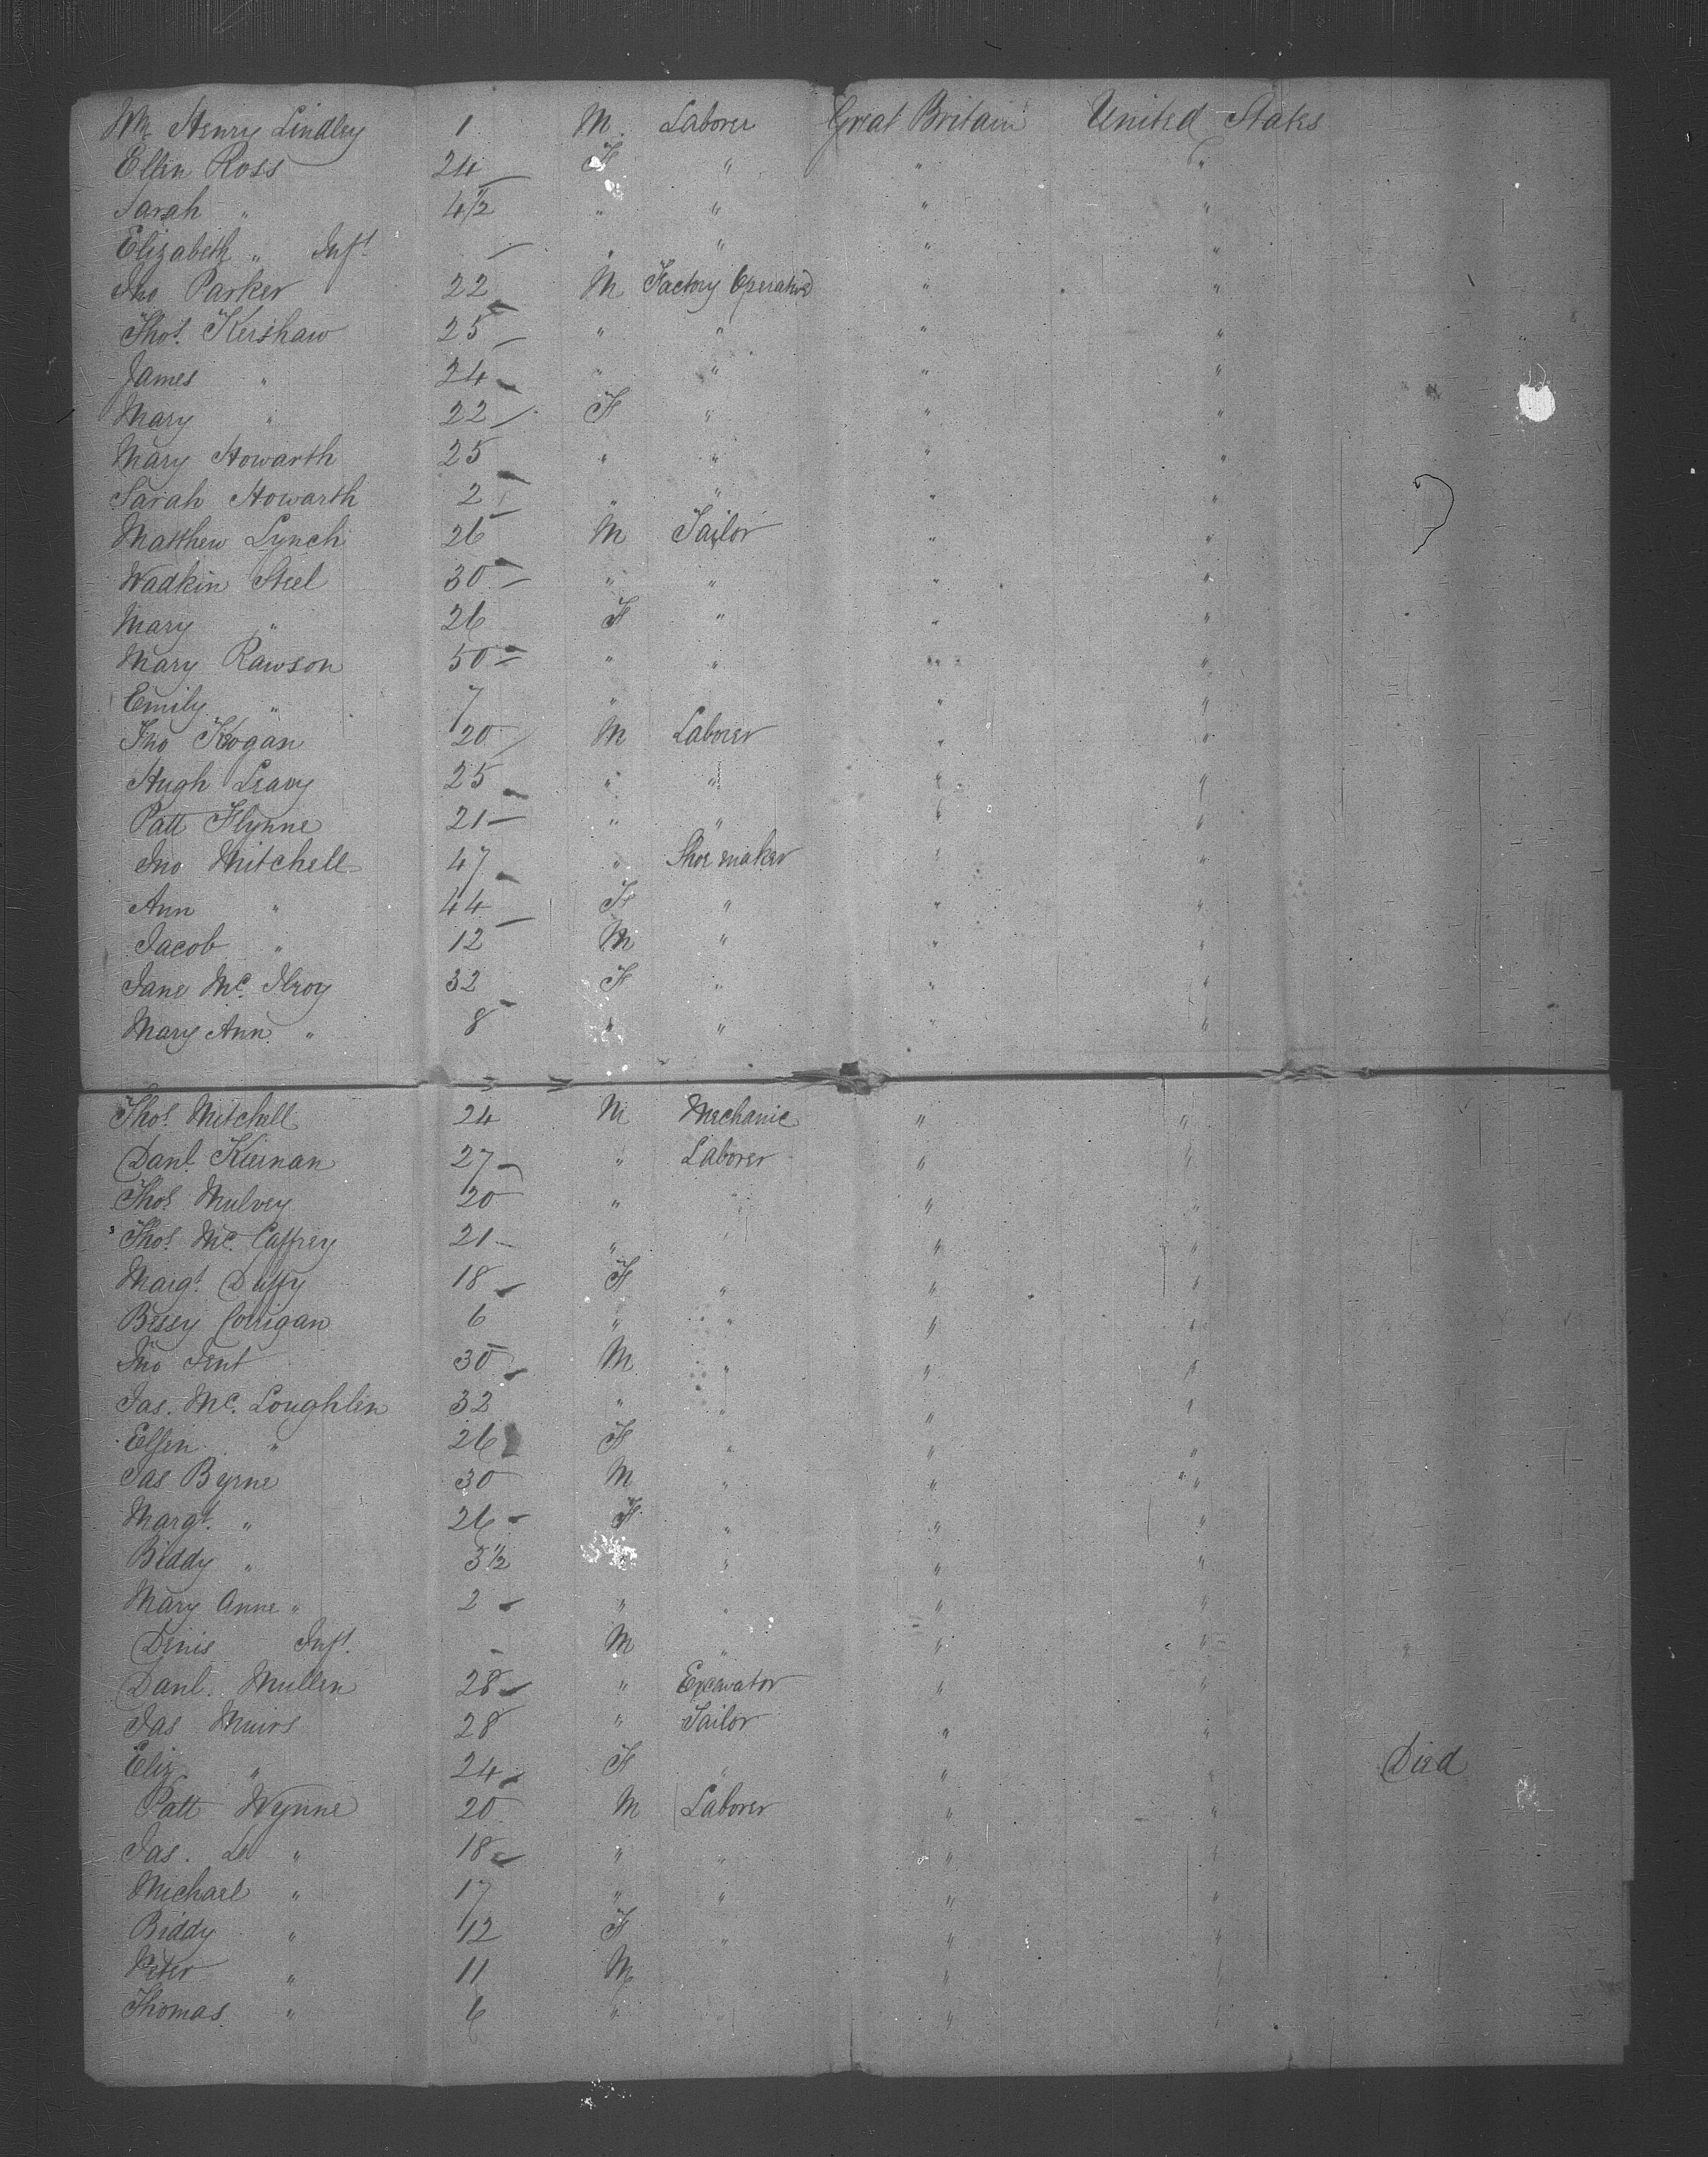 Wm Henry Lindley 1 M. Laborer Great Britain United States
Ellen Ross 24 F " " "
Sarah " 4 1/2 " " " "
Elizabeth " Inft " " " "
Jno Parker 22 M Factory Operative " "
Thos. Kershaw 25 " " " "
James " 24 " " " "
Mary " 22 F " " "
Mary Howarth 25 " " " "
Sarah Howarth 2 " " " "
Matthew Lynch 26 M Tailor " "
Wadkin Steel 30 " " " "
Mary " 26 F " " "
Mary Rawson 50 " " " "
Emily " 7 " " "
Jno Kogan 20 M Laborer " "
Hugh Leavy 25 " " " "
Patt Flynne 21 " " " "
Jno Mitchell 47 " Shoe maker " "
Ann " 44 F " " "
Jacob " 12 M " " "
Jane Mc. Ilroy 32 F " " "
Mary Ann " 8 " " " "
Thos. Mitchell 24 M Mechanic " "
Danl. Kiernan 27 " Laborer " "
Thos Mulvey 20 " " " "
Thos. Mc. Caffrey 21 " " " "
Margt. Duffy 18 F " " "
Bessy Corrigan 6 " " " "
Jno 30 M " " "
Jas. Mc. Loughlin 32 " " " "
Ellen " 26 F " " "
Jas Byrne 30 M " " "
Margt. " 26 F " " "
Biddy " 3 1/2 " " " "
Mary Anne " 2 " " " "
Denis Inft. M " " "
Danl. Mullen 28 " Excavator " "
Jas Muirs 28 " Tailor " "
Eliz " 24 F " " " Died
Patt Wynne 20 M Laborer " "
Jas. " 18 " " " "
Michael " 17 " " " "
Biddy " 12 F " " "
Peter " 11 M " "
Thomas " 6 " " "